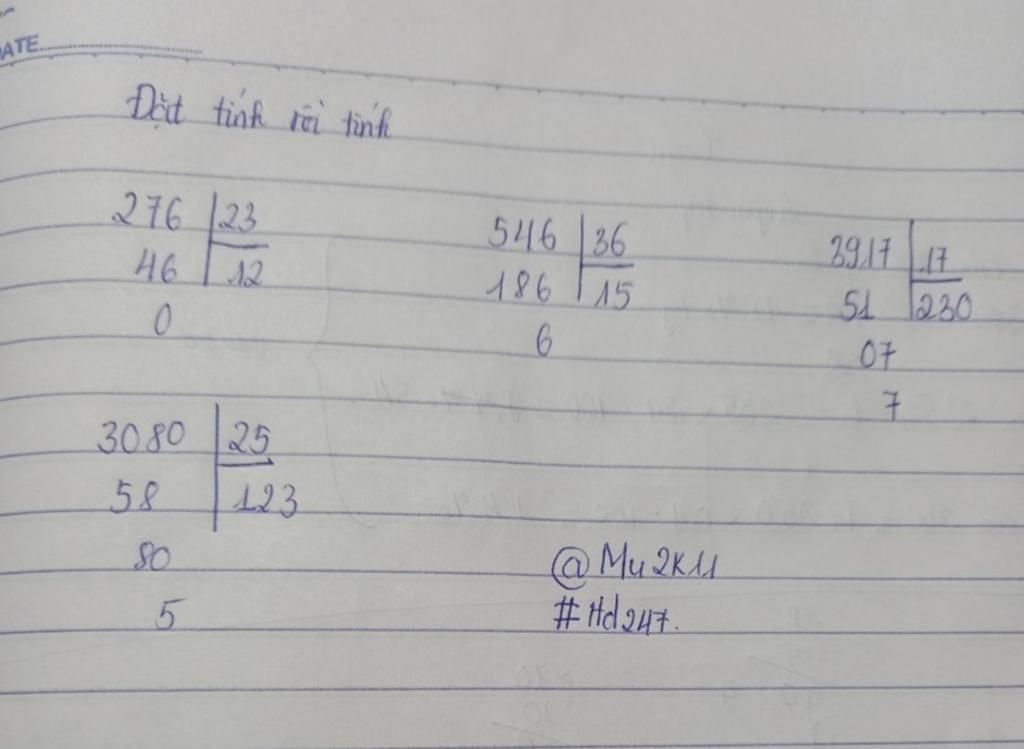 DATE
Đặt tính rồi tính
276 23
46 12
0
546 36
186 15
6
3917 17
51 230
07
7
3080 25
58 123
80
5
@Mu2K11
#Hd247.